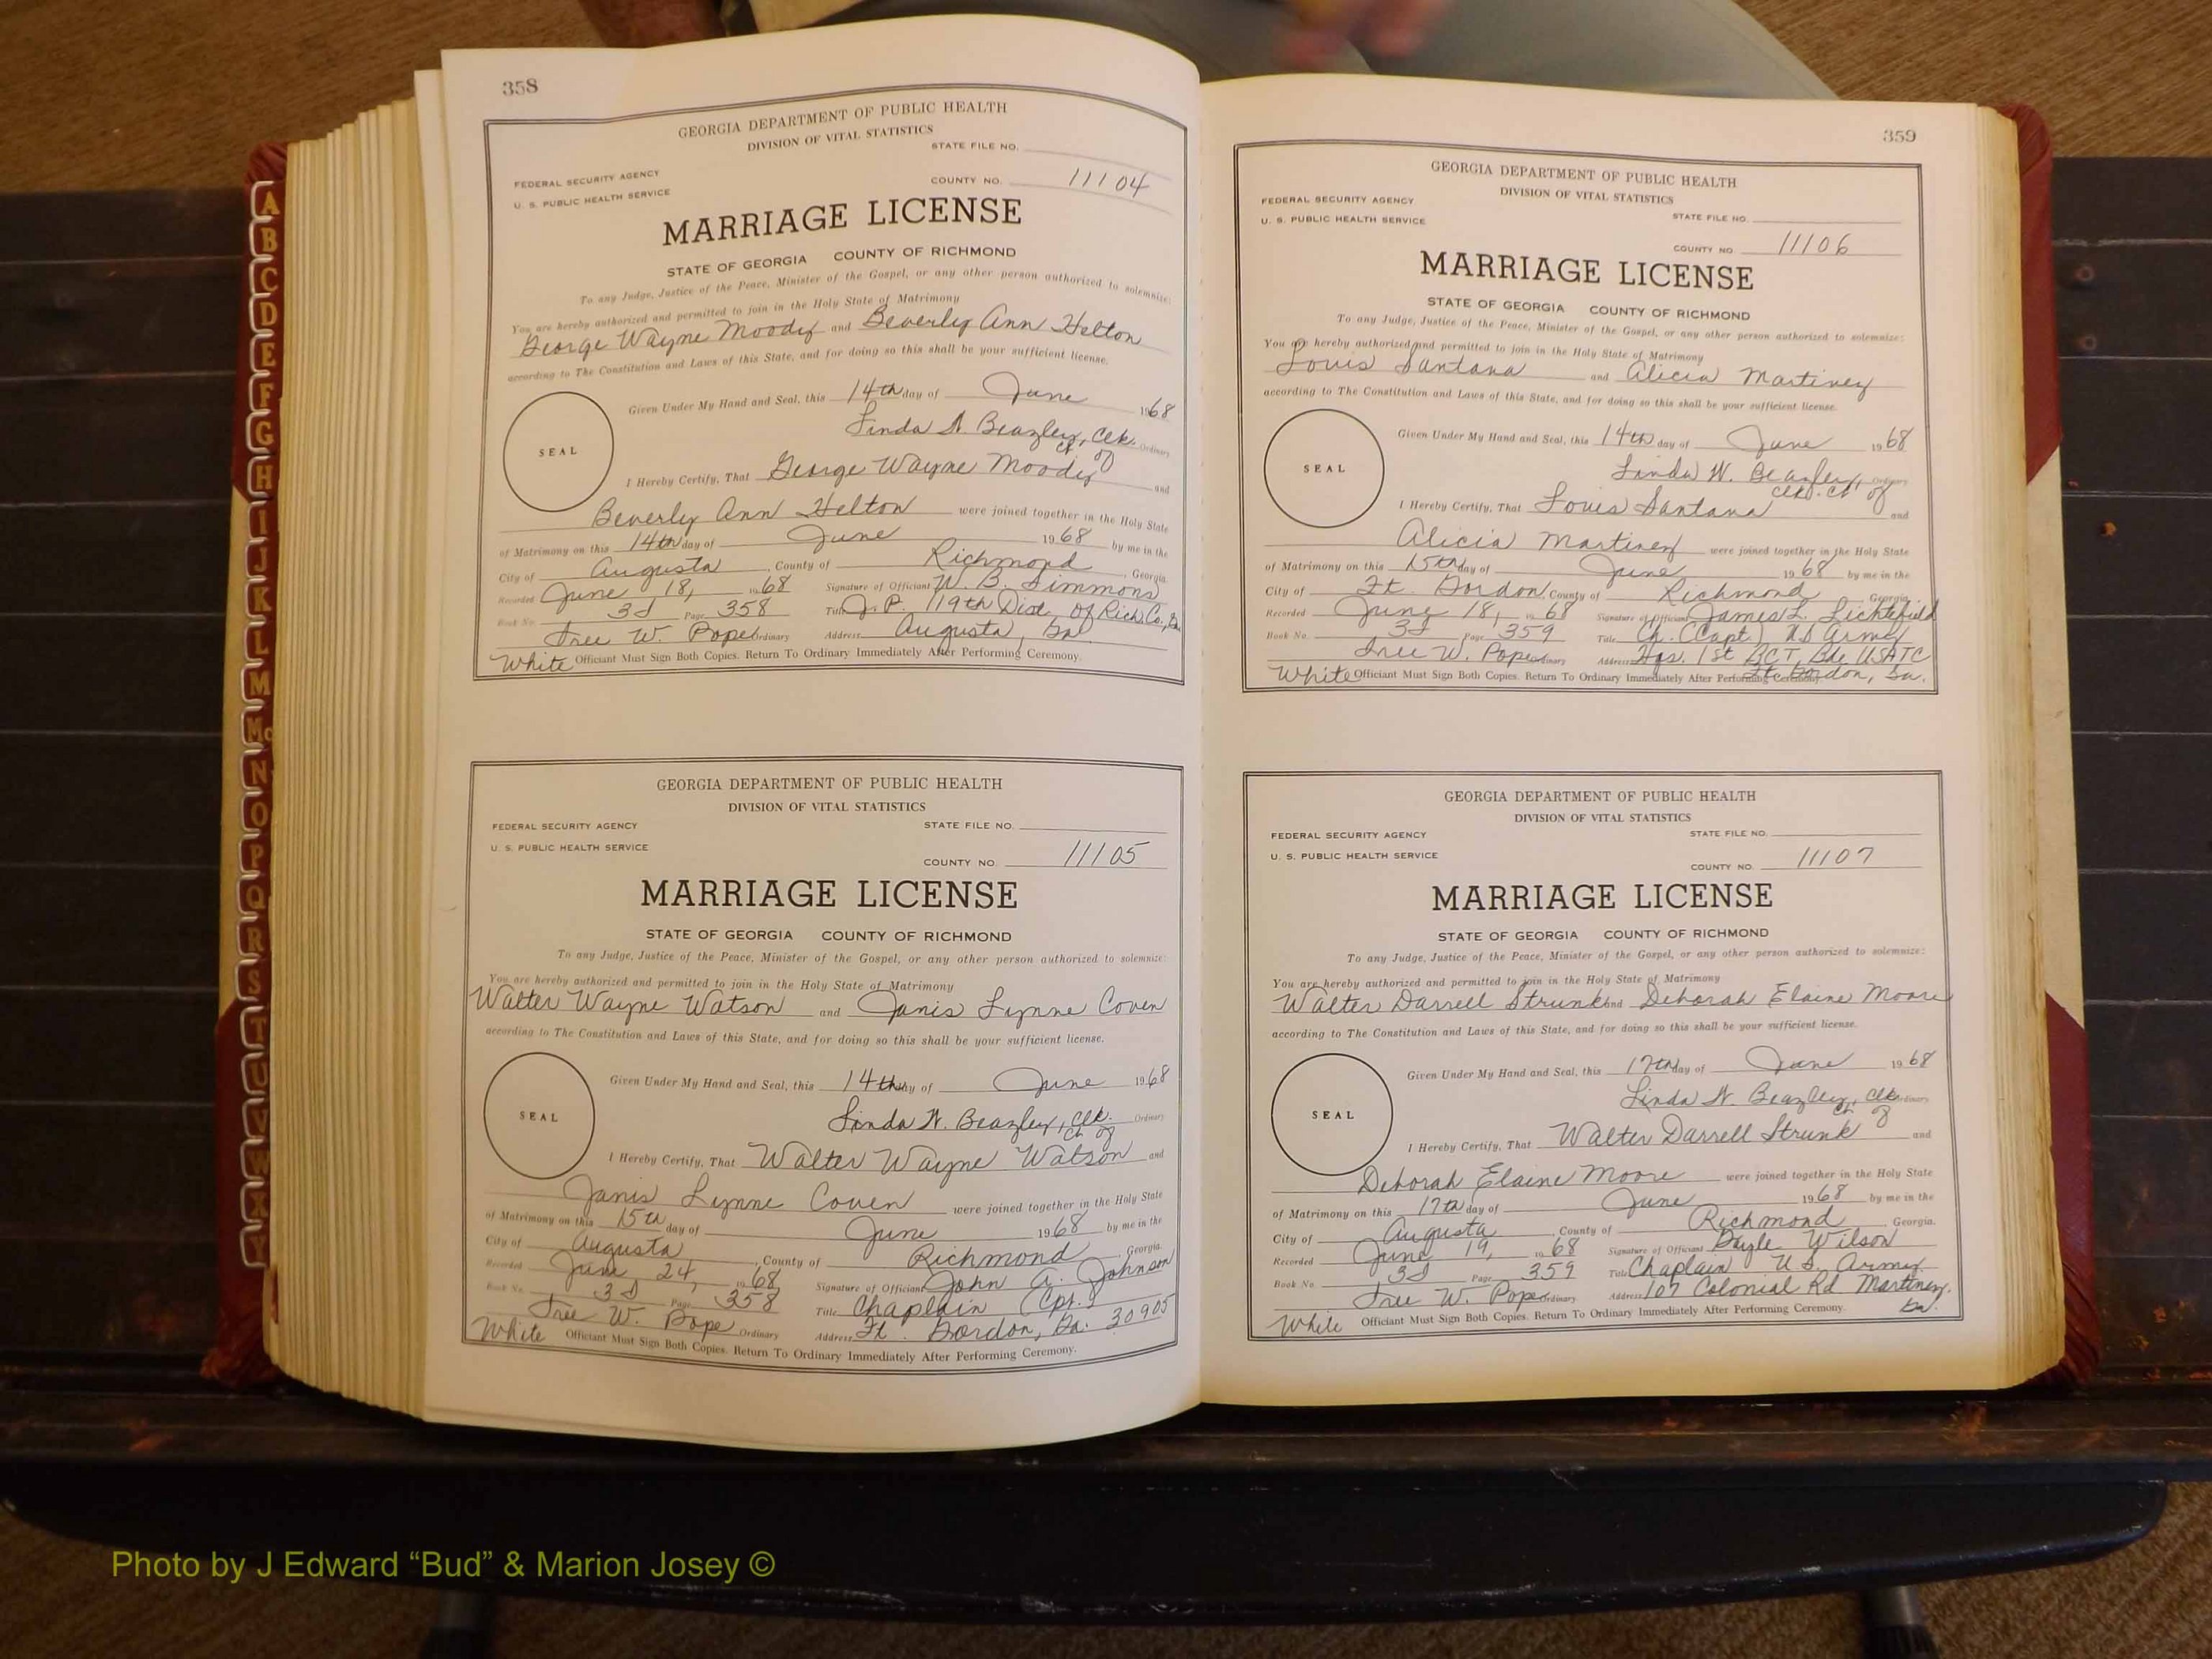 358
GEORGIA DEPARTMENT OF PUBLIC HEALTH
DIVISION OF VITAL STATISTICS
STATE FILE NO.
FEDERAL SECURITY AGENCY
U. S. PUBLIC HEALTH SERVICE
COUNTY NO. 11104
MARRIAGE LICENSE
STATE OF GEORGIA COUNTY OF RICHMOND
To any Judge, Justice of the Peace, Minister of the Gospel, or any other person authorized to solemnize:
You are hereby authorized and permitted to join in the Holy State of Matrimony
George Wayne Moody and Beverly Ann Helton
according to The Constitution and Laws of this State, and for doing so this shall be your sufficient license.
Given Under My Hand and Seal, this 14th day of June 1968
Linda W. Beazley, Clk. Ordinary
Ct of
SEAL
I Hereby Certify, That George Wayne Moody and
Beverly Ann Helton were joined together in the Holy State
of Matrimony on this 14th day of June 1968 by me in the
City of Augusta, County of Richmond, Georgia.
Recorded June 18, 1968 Signature of Officiant W. B. Simmons
Book No. 3J Page 358 Title J. P. 119th Dist. of Rich. Co., Ga
Free W. Pope Ordinary Address Augusta, Ga
White Officiant Must Sign Both Copies. Return To Ordinary Immediately After Performing Ceremony.
GEORGIA DEPARTMENT OF PUBLIC HEALTH
DIVISION OF VITAL STATISTICS
FEDERAL SECURITY AGENCY STATE FILE NO.
U. S. PUBLIC HEALTH SERVICE
COUNTY NO. 11105
MARRIAGE LICENSE
STATE OF GEORGIA COUNTY OF RICHMOND
To any Judge, Justice of the Peace, Minister of the Gospel, or any other person authorized to solemnize:
You are hereby authorized and permitted to join in the Holy State of Matrimony
Walter Wayne Watson and Janis Lynne Coven
according to The Constitution and Laws of this State, and for doing so this shall be your sufficient license.
Given Under My Hand and Seal, this 14th day of June 1968
Linda W. Beazley, Clk. Ordinary
Ct of
SEAL
I Hereby Certify, That Walter Wayne Watson and
Janis Lynne Coven were joined together in the Holy State
of Matrimony on this 15th day of June 1968 by me in the
City of Augusta, County of Richmond, Georgia.
Recorded June 24, 1968 Signature of Officiant John A. Johnson
Book No. 3J Page 358 Title Chaplain (Cpt.)
Free W. Pope Ordinary Address Ft. Gordon, Ga. 30905
White Officiant Must Sign Both Copies. Return To Ordinary Immediately After Performing Ceremony.
359
GEORGIA DEPARTMENT OF PUBLIC HEALTH
DIVISION OF VITAL STATISTICS
FEDERAL SECURITY AGENCY
U. S. PUBLIC HEALTH SERVICE
STATE FILE NO.
COUNTY NO. 11106
MARRIAGE LICENSE
STATE OF GEORGIA COUNTY OF RICHMOND
To any Judge, Justice of the Peace, Minister of the Gospel, or any other person authorized to solemnize:
You are hereby authorized and permitted to join in the Holy State of Matrimony
Louis Santana and Alicia Martinez
according to The Constitution and Laws of this State, and for doing so this shall be your sufficient license.
Given Under My Hand and Seal, this 14th day of June 1968
Linda W. Beazley, Ordinary
Clk. Ct of
SEAL
I Hereby Certify, That Louis Santana and
Alicia Martinez were joined together in the Holy State
of Matrimony on this 15th day of June 1968 by me in the
City of Ft. Gordon, County of Richmond, Georgia
Recorded June 18, 1968 Signature of Officiant James L. Lichtefield
Book No. 3J Page 359 Title Ch. (Capt.) US Army
Free W. Pope Ordinary Address Hqs. 1st BCT Bde USATC
Ft. Gordon, Ga.
White Officiant Must Sign Both Copies. Return To Ordinary Immediately After Performing Ceremony.
GEORGIA DEPARTMENT OF PUBLIC HEALTH
DIVISION OF VITAL STATISTICS
FEDERAL SECURITY AGENCY STATE FILE NO.
U. S. PUBLIC HEALTH SERVICE
COUNTY NO. 11107
MARRIAGE LICENSE
STATE OF GEORGIA COUNTY OF RICHMOND
To any Judge, Justice of the Peace, Minister of the Gospel, or any other person authorized to solemnize:
You are hereby authorized and permitted to join in the Holy State of Matrimony
Walter Darrell Strunk and Deborah Elaine Moore
according to The Constitution and Laws of this State, and for doing so this shall be your sufficient license.
Given Under My Hand and Seal, this 17th day of June 1968
Linda W. Beazley, Clk Ordinary
Ct of
SEAL
I Hereby Certify, That Walter Darrell Strunk and
Deborah Elaine Moore were joined together in the Holy State
of Matrimony on this 17th day of June 1968 by me in the
City of Augusta, County of Richmond, Georgia.
Recorded June 19, 1968 Signature of Officiant Dayle Wilson
Book No. 3J Page 359 Title Chaplain U S. Army
Free W. Pope Ordinary Address 107 Colonial Rd Martinez,
Ga.
White Officiant Must Sign Both Copies. Return To Ordinary Immediately After Performing Ceremony.
A
B
C
D
E
F
G
H
I
J
K
L
M
Mc
N
O
P
Q
R
S
T
U
V
W
X
Y
Photo by J Edward “Bud” & Marion Josey ©